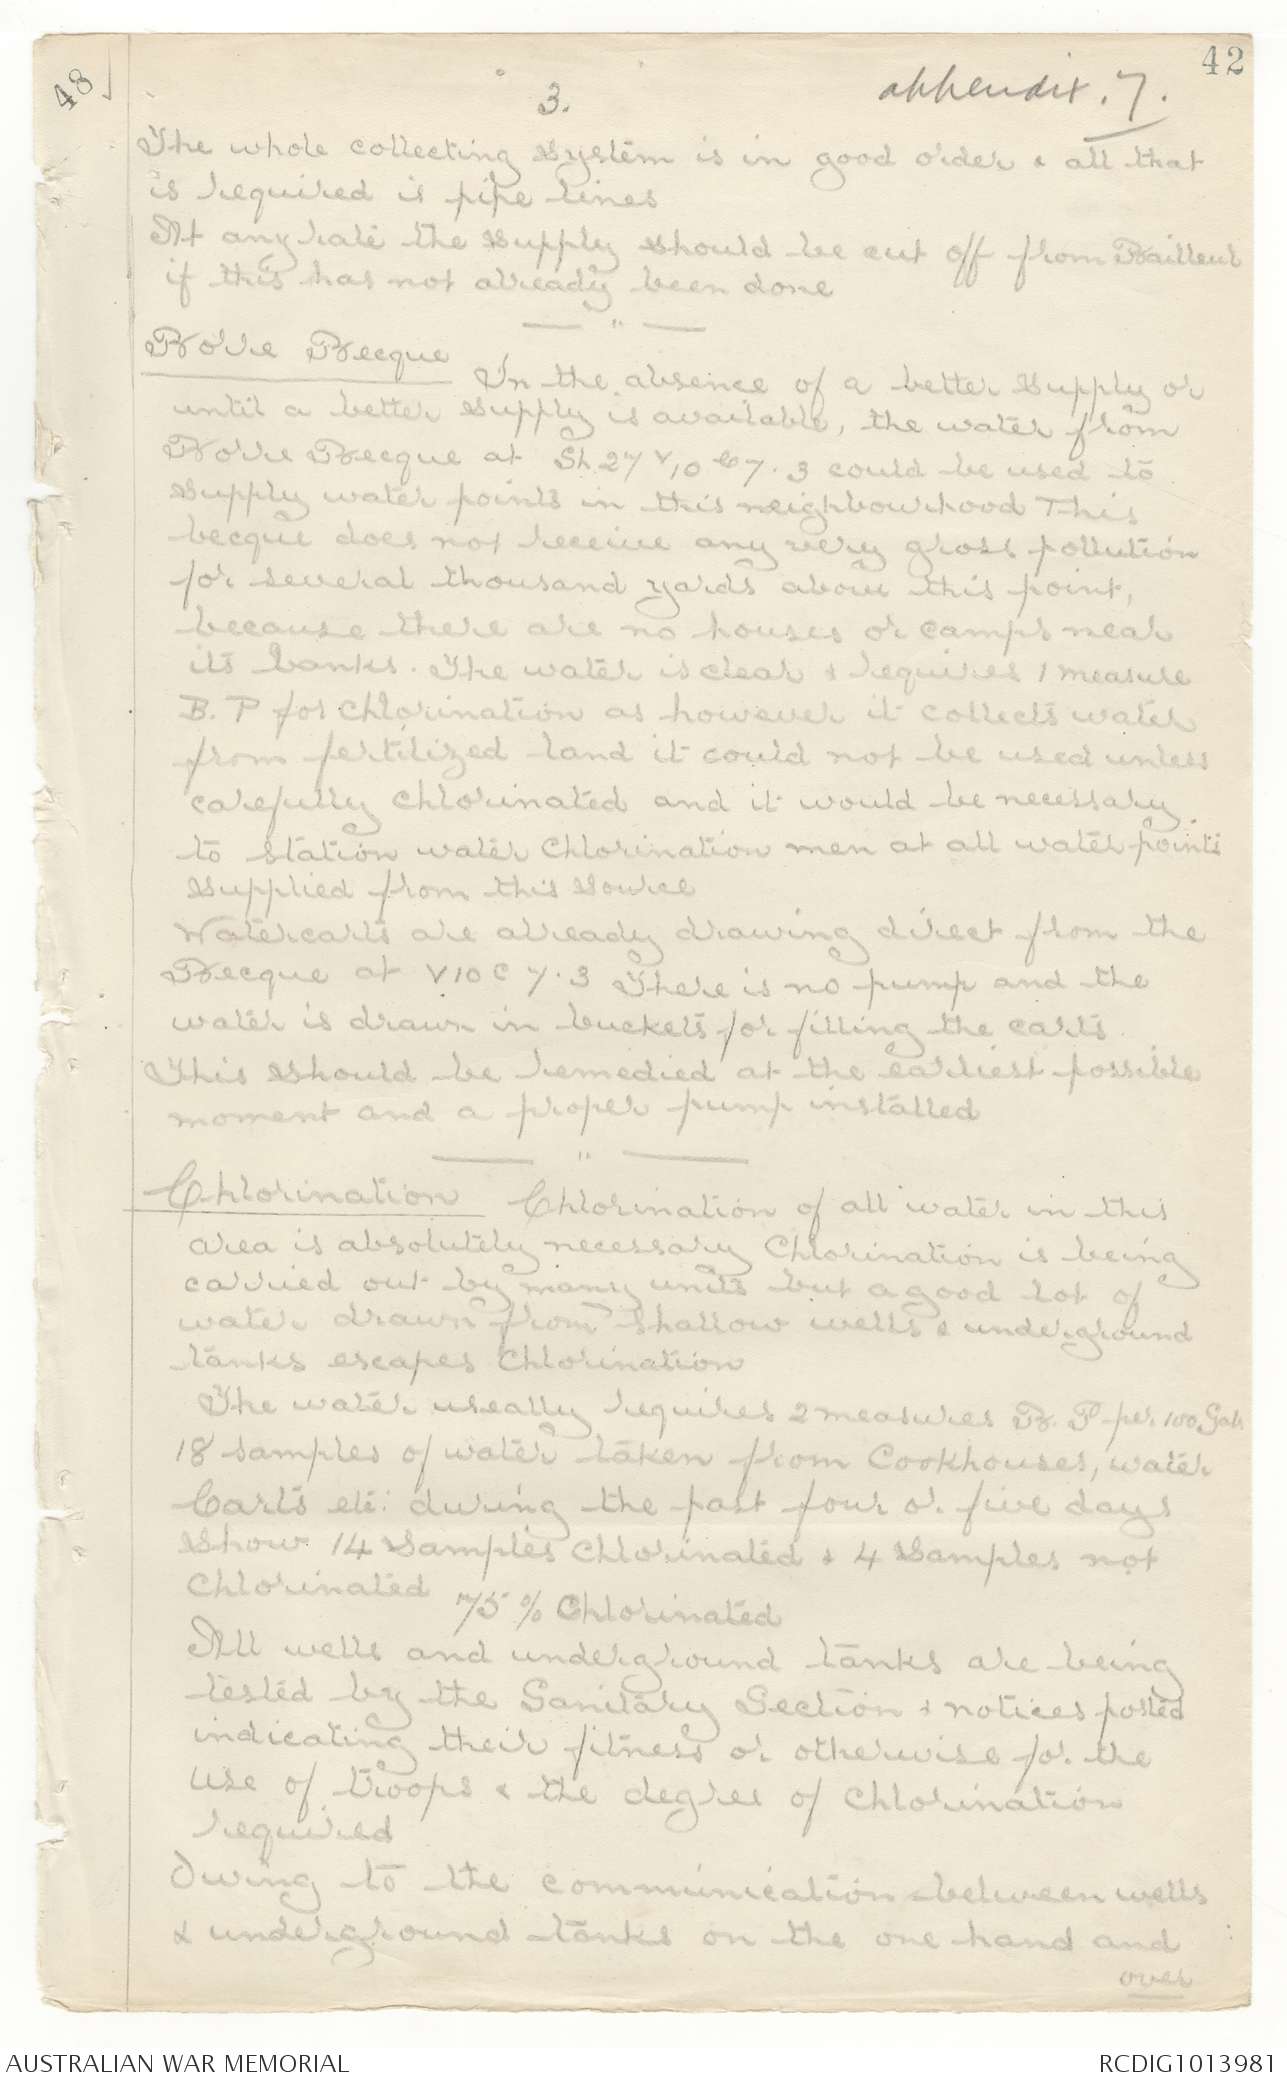 42
48
3.
appendix. 7.
The whole collecting system is in good order & all that
is required is pipe lines
At any rate the supply should be cut off from Bailleul
if this has not already been done
— " —
Borre Becque In the absence of a better supply or
until a better supply is available, the water from
Borre Becque at Sh. 27 V10 C 7.3 could be used to
supply water points in this neighbourhood This
becque does not receive any very gross pollution
for several thousand yards above this point,
because there are no houses or camps near
its banks. The water is clear & requires 1 measure
B. P for Chlorination as however it collects water
from fertilized land it could not be used unless
carefully chlorinated and it would be necessary
to station water chlorination men at all water points
supplied from this source
Watercarts are already drawing direct from the
Becque at V10 C 7.3 There is no pump and the
water is drawn in buckets for filling the carts.
This should be remedied at the earliest possible
moment and a proper pump installed
— " —
Chlorination Chlorination of all water in this
area is absolutely necessary Chlorination is being
carried out by many units but a good lot of
water drawn from shallow wells & underground
tanks escapes Chlorination
The water useally requires 2 measures B. P per 100 Gals
18 samples of water taken from Cookhouses, water
Carts etc: during the past four or five days
show 14 Samples Chlorinated & 4 Samples not
Chlorinated 75 % Chlorinated
All wells and underground tanks are being
tested by the Sanitary Section & notices posted
indicating their fitness or otherwise for the
use of troops & the degree of chlorination
required
Owing to the communication between wells
& underground tanks on the one hand and
over
AUSTRALIAN WAR MEMORIAL
RCDIG1013981